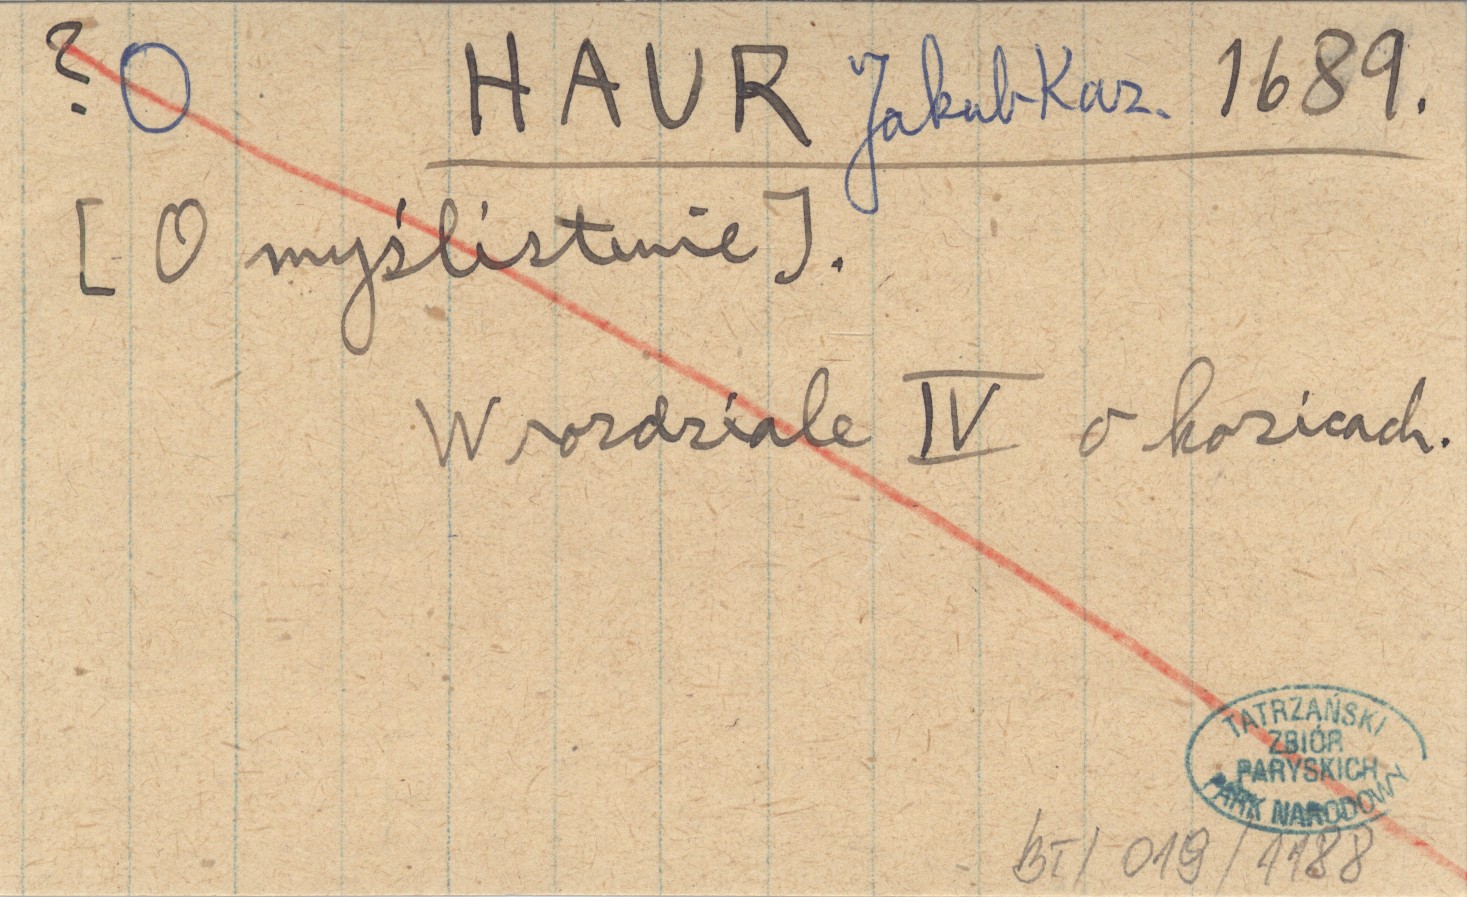 ? O HAUR Jakub Kaz. 1689.
[O myślistwie].
W rozdziale IV o kozicach.
TATRZAŃSKI
ZBIÓR
PARYSKICH
PARK NARODOWY
BT/019/1188